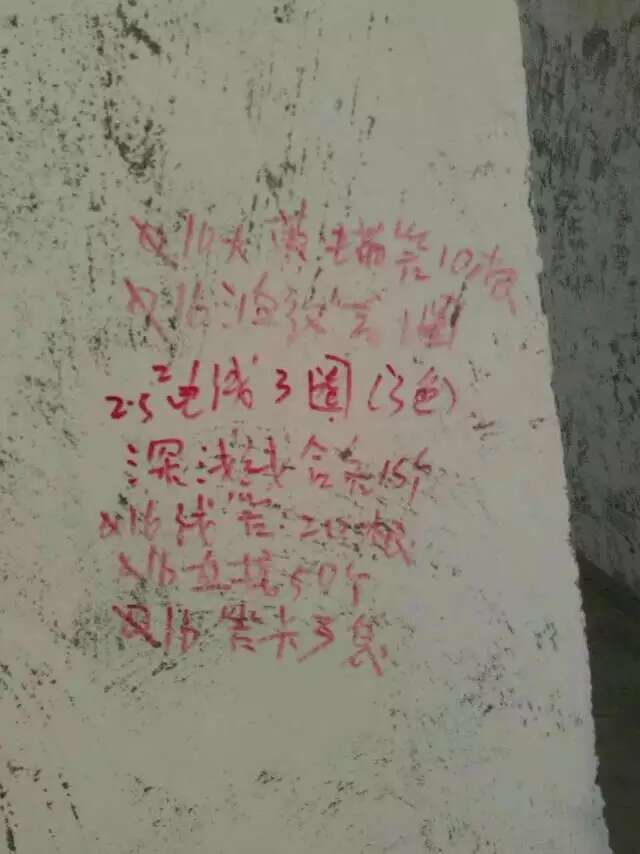 16大黄电箱管10根
16波纹管1圈
2.5²电线3圈(3色)
深浅线合各15个
16线管20根
16直接50个
16管卡3包